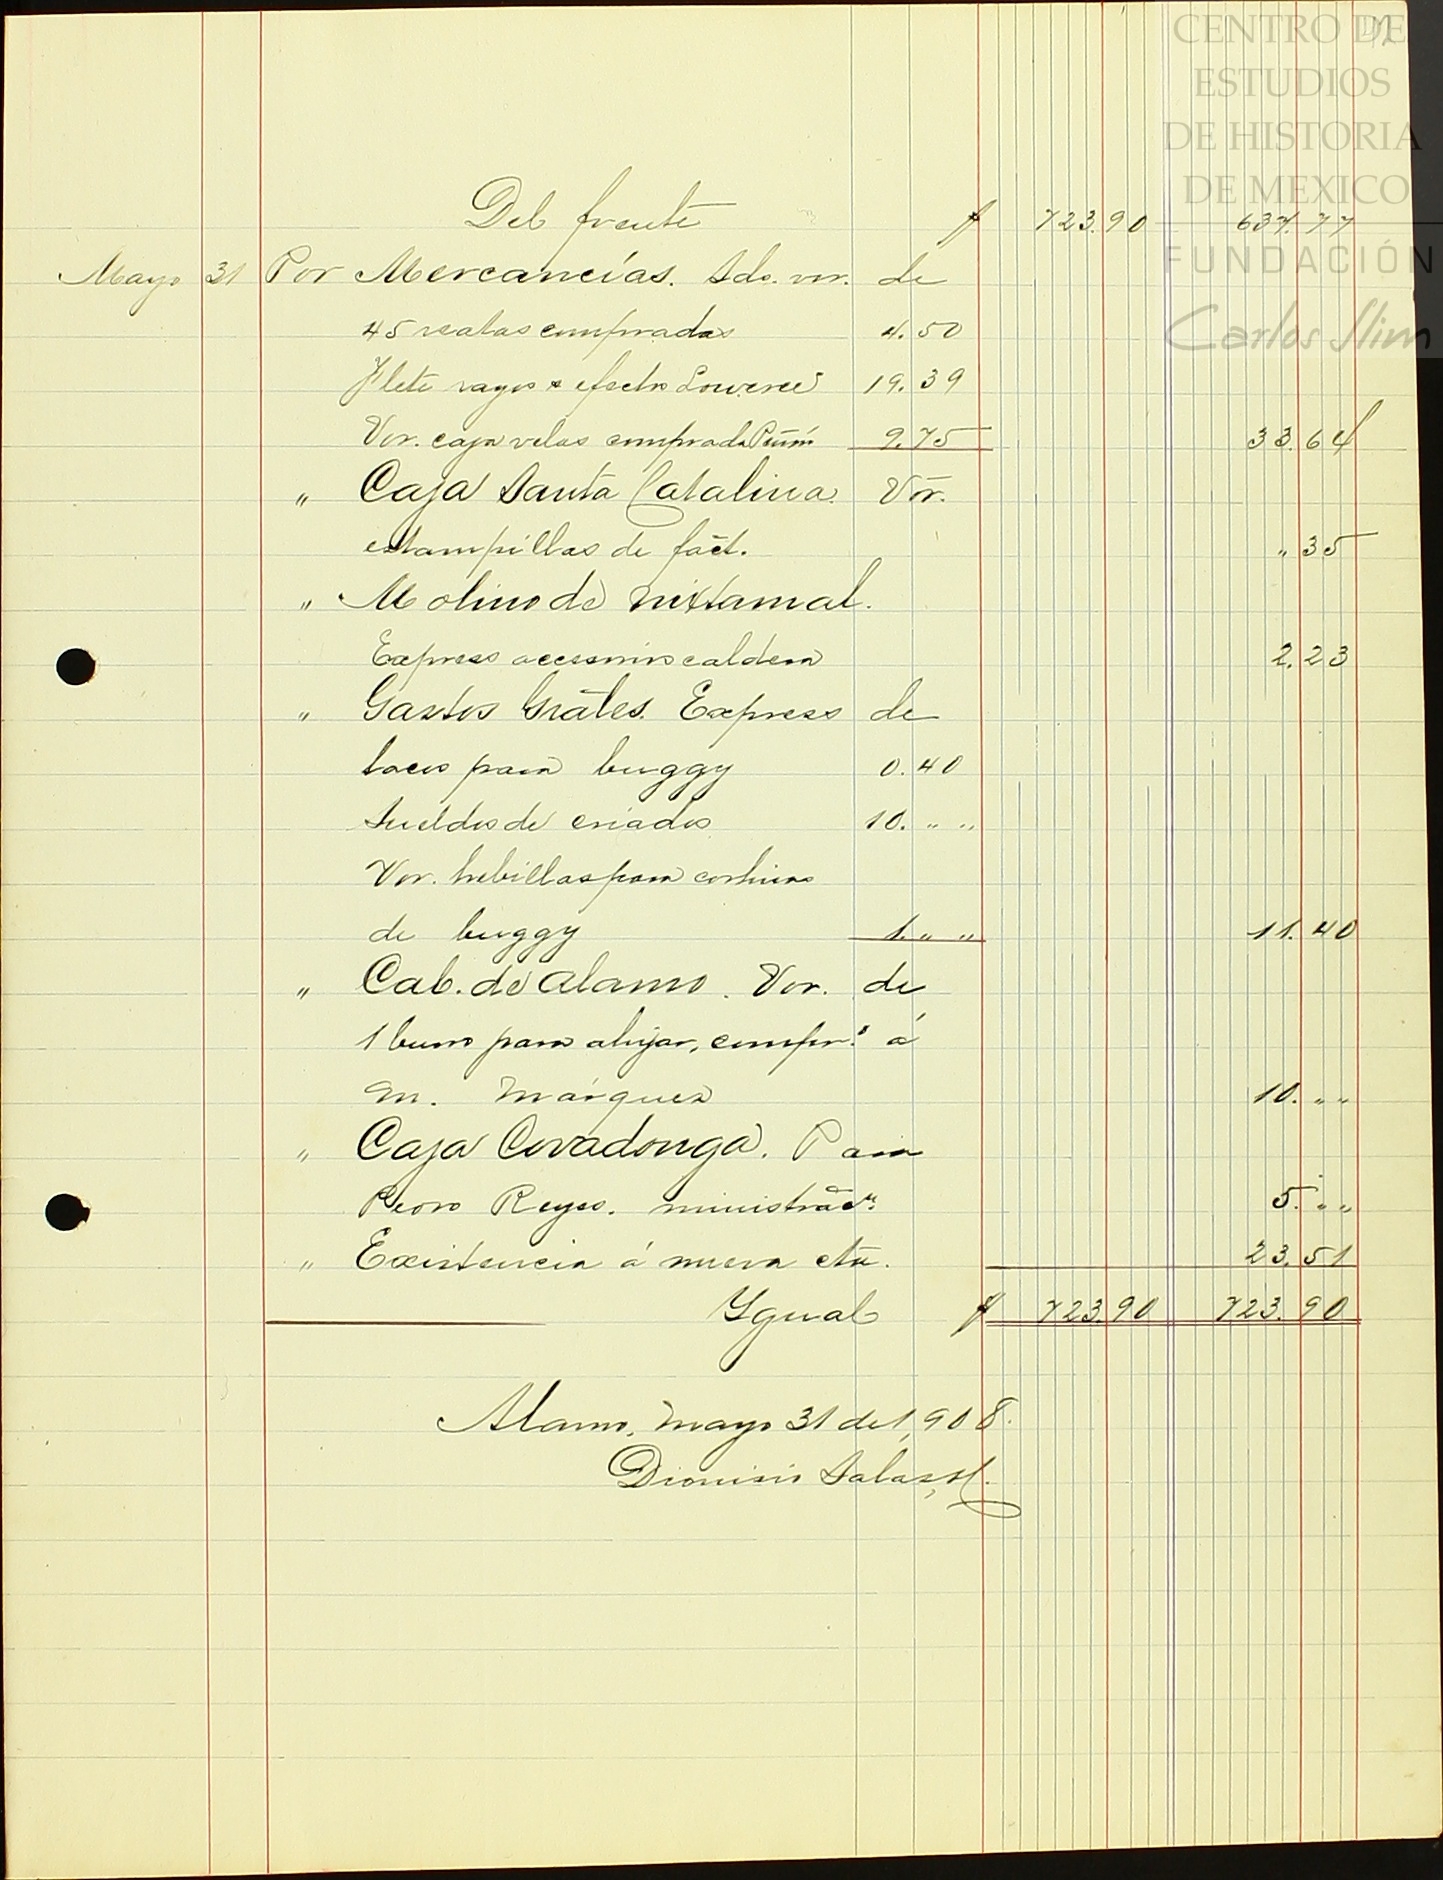 CENTRO DE
ESTUDIOS
DE HISTORIA
DE MEXICO
FUNDACIÓN
Carlos Slim
Del frente $ 723.90 637.77
Mayo 31 Por Mercancías. Sdo. vor. de
45 reatas compradas 4.50
Flete rayos efectos 19.39
Vor. caja velas comprada 9.75 33.64
" Caja Santa Catalina. Vor.
estampillas de fact. " 35
" Molino de nixtamal.
Express accesorios caldera 2.23
" Gastos Grāles. Express de
para buggy 0.40
Sueldos de criados 10. " "
Vor. hebillas para cortinas
de buggy 1. " " 11.40
" Cab. de Alamo. Vor. de
1 burro para ahijar, compr. á
M. Márquez 10. " "
" Caja Covadonga. Para
Pedro Reyes. ministrac. 5. " "
" Existencia á nueva cta. 23.51
Ygual $ 723.90 723.90
Alamo, Mayo 31 de 1,908.
Dionisio Salas,